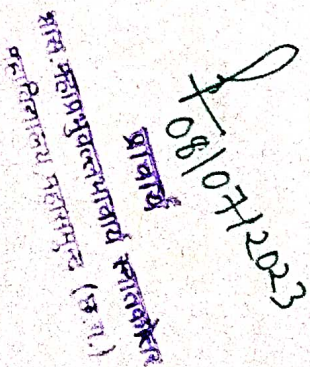 08/07/2023
प्राचार्य
शास. महाप्रभुवल्लभाचार्य स्नातकोत्तर
महाविद्यालय, महासमुन्द (छ.ग.)